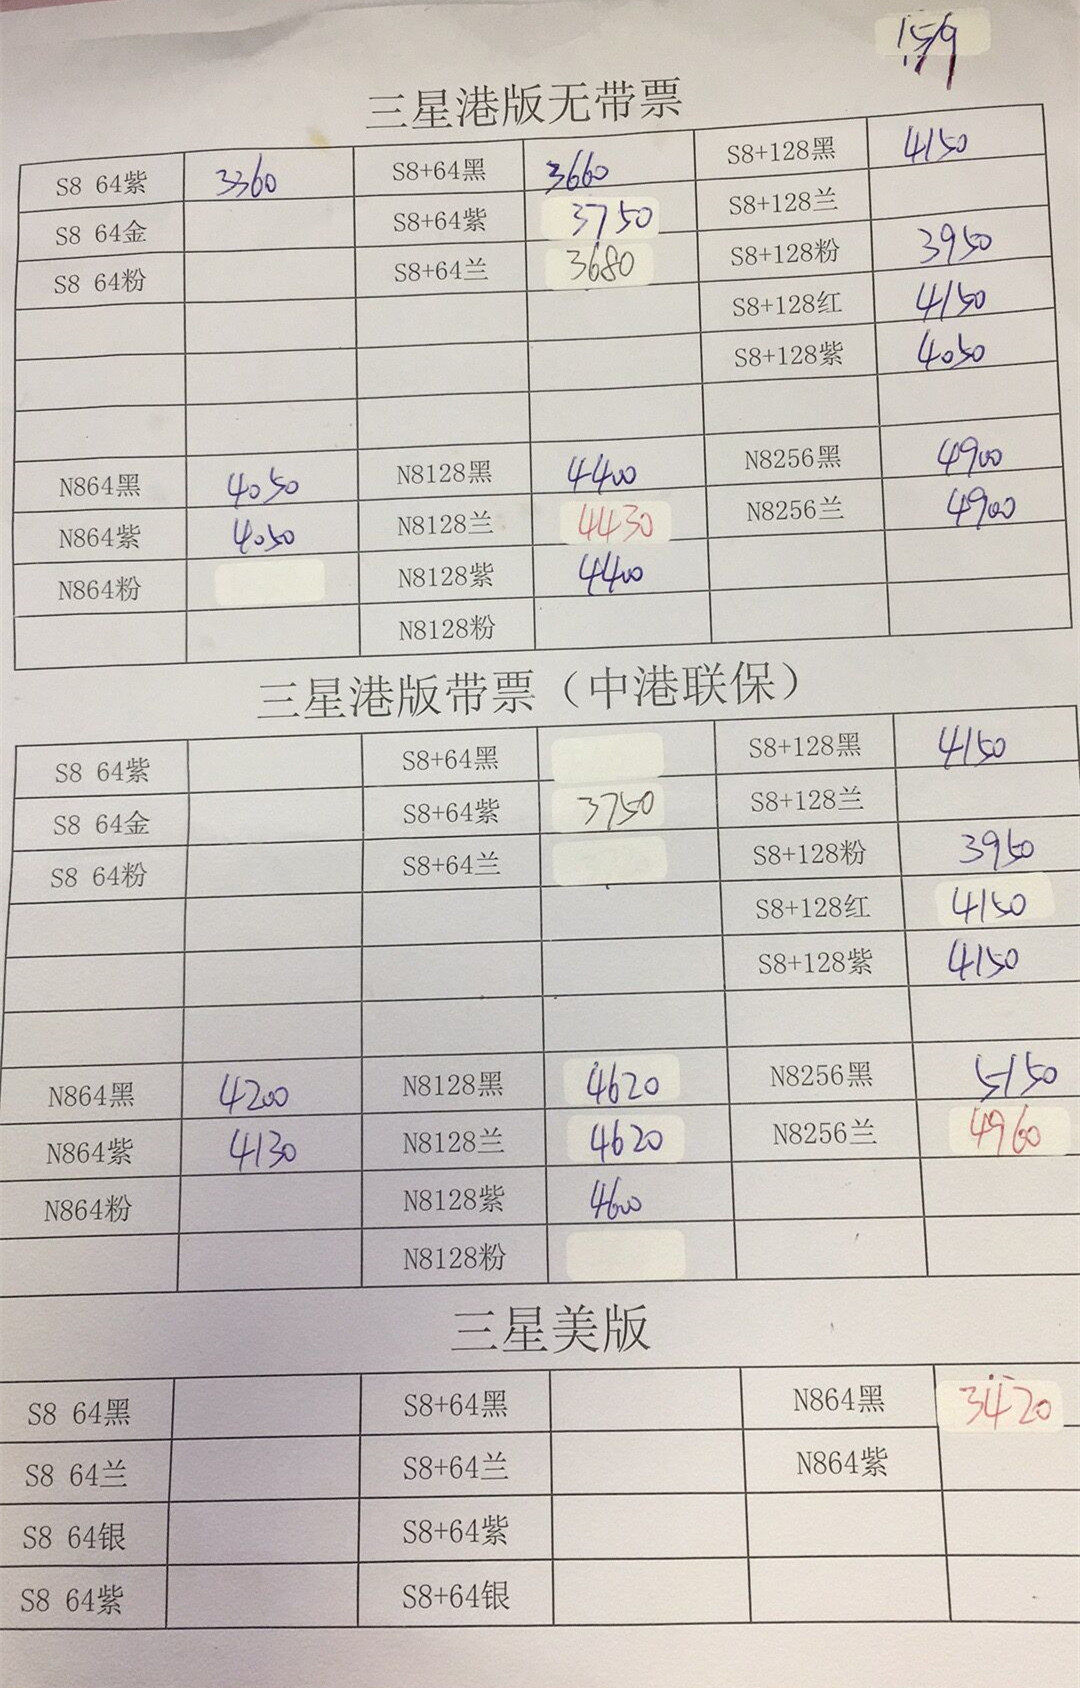 159
三星港版无带票
S8 64紫 3360 S8+64黑 3660 S8+128黑 4150
S8 64金 S8+64紫 3750 S8+128兰
S8 64粉 S8+64兰 3680 S8+128粉 3950
S8+128红 4150
S8+128紫 4050
N864黑 4050 N8128黑 4400 N8256黑 4900
N864紫 4050 N8128兰 4430 N8256兰 4900
N864粉 N8128紫 4400
N8128粉
三星港版带票（中港联保）
S8 64紫 S8+64黑 S8+128黑 4150
S8 64金 S8+64紫 3750 S8+128兰
S8 64粉 S8+64兰 S8+128粉 3950
S8+128红 4150
S8+128紫 4150
N864黑 4200 N8128黑 4620 N8256黑 5150
N864紫 4130 N8128兰 4620 N8256兰 4960
N864粉 N8128紫 4600
N8128粉
三星美版
S8 64黑 S8+64黑 N864黑 3420
S8 64兰 S8+64兰 N864紫
S8 64银 S8+64紫
S8 64紫 S8+64银